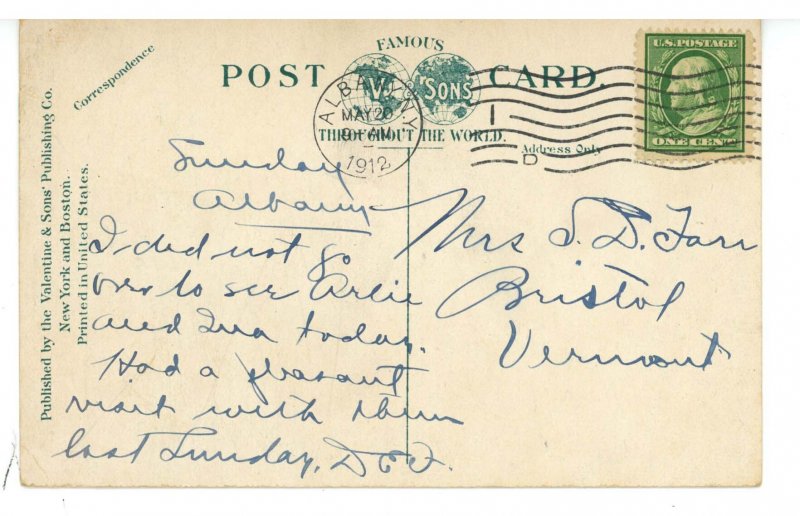 Correspondence
FAMOUS
POST CARD.
V. & SONS
THROUGHOUT THE WORLD.
Address Only
Published by the Valentine & Sons' Publishing Co.
New York and Boston.
Printed in United States.
ALBANY, N.Y.
MAY 20
AM
1912
U.S. POSTAGE
ONE CENT
Sunday
Albany
I did not go
over to see Arlie
and Ina today.
Had a pleasant
visit with them
last Sunday, D E F.
Mrs S. D. Farr
Bristol
Vermont